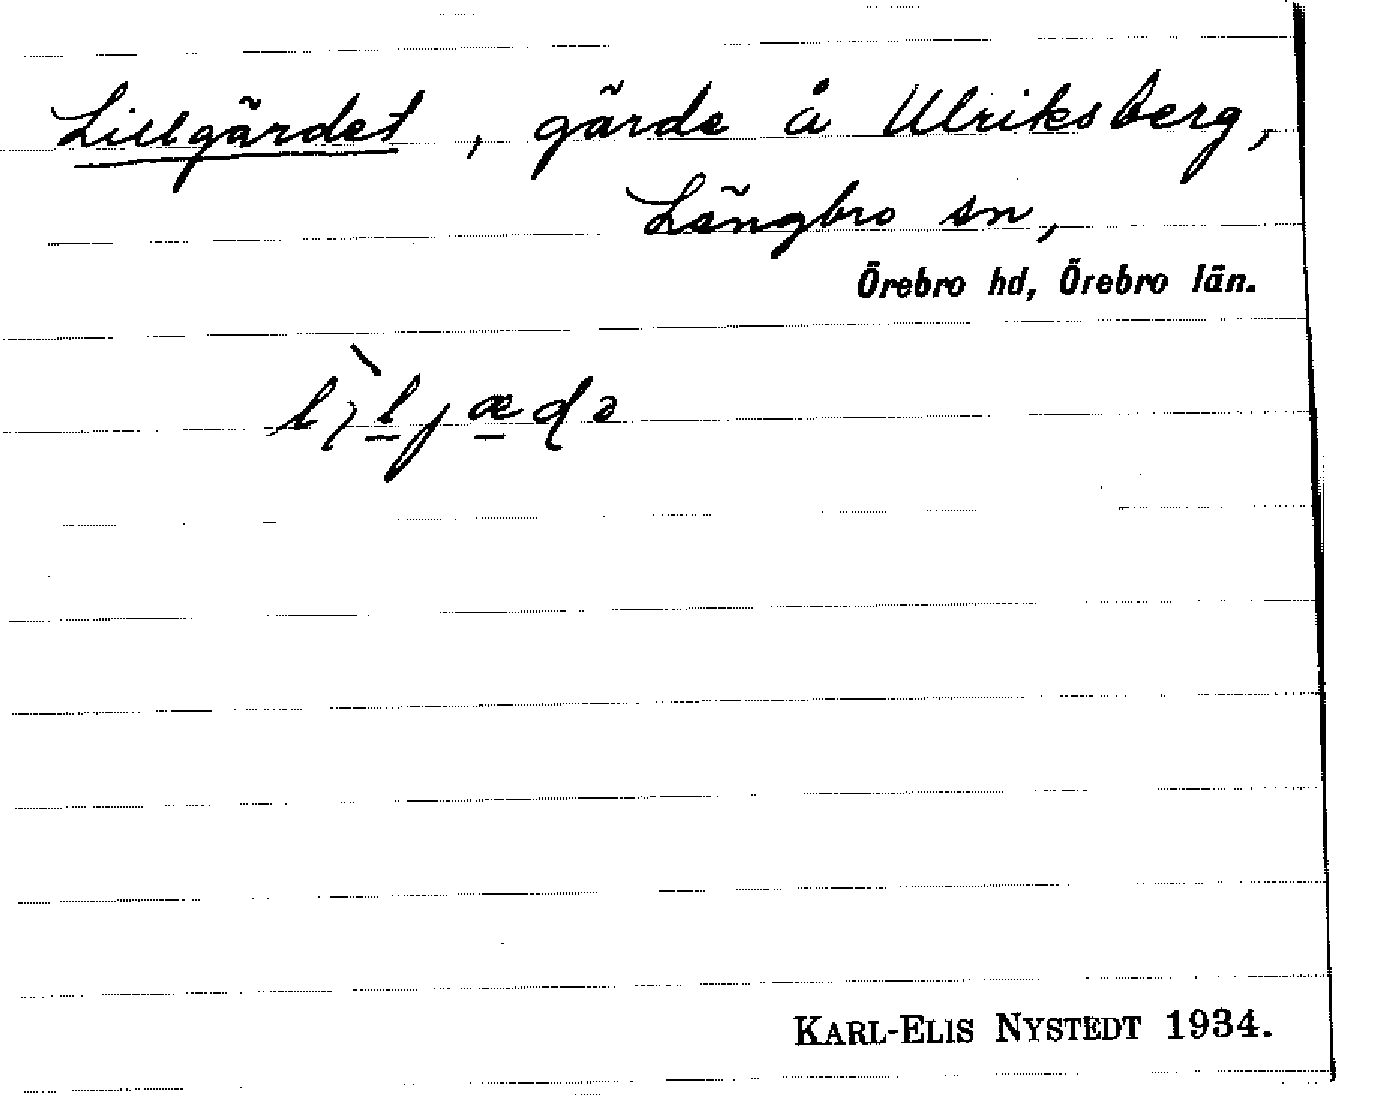 Lillgärdet, gärde å Ulriksberg,
Längbro sn,
Örebro hd, Örebro län.
KARL-ELIS NYSTEDT 1934.